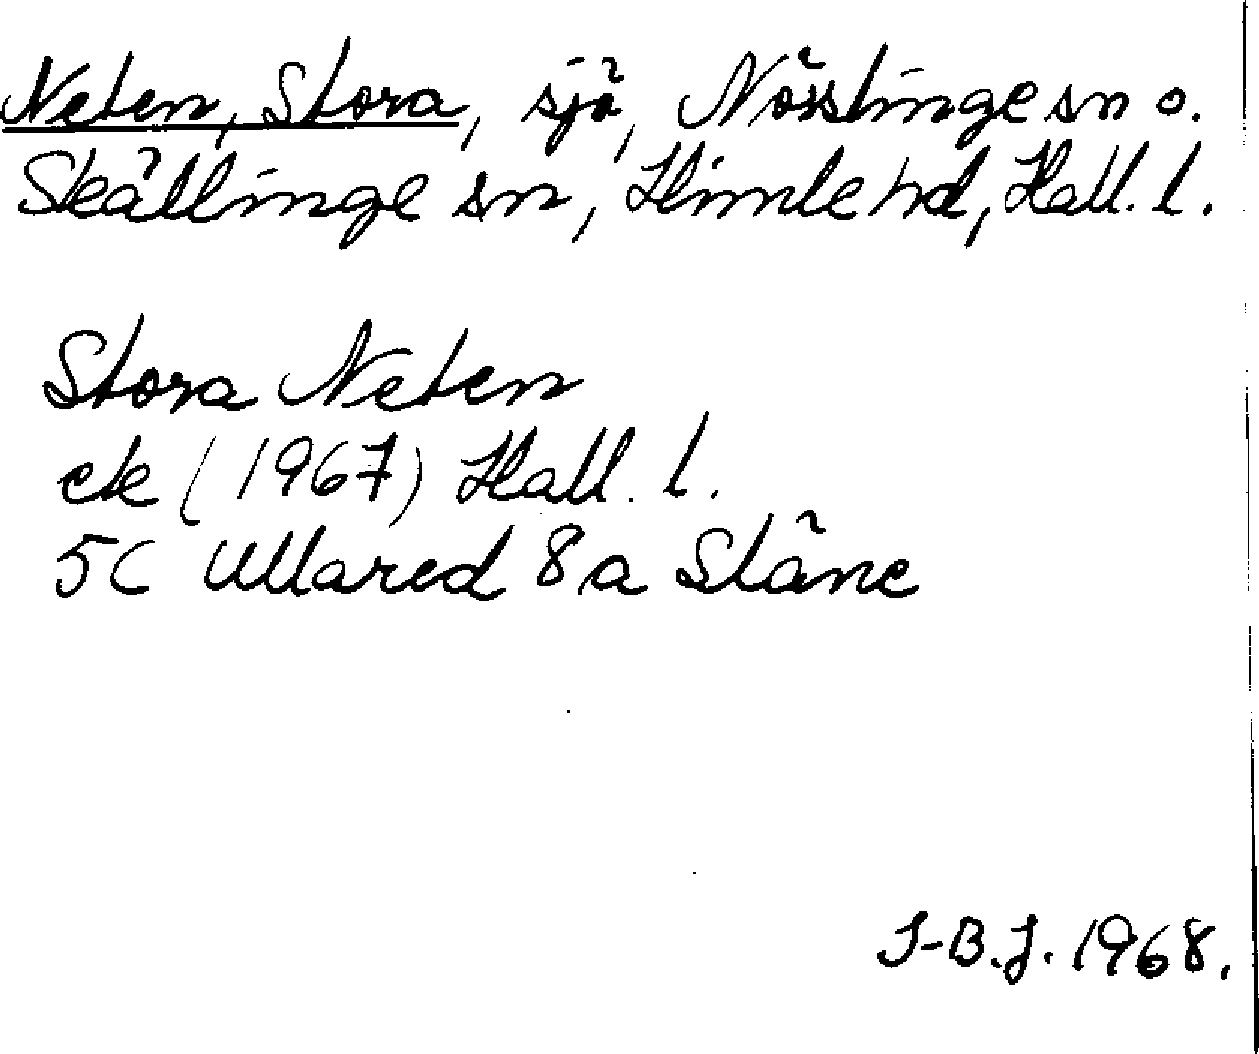 Neten, Stora, sjö, Nösslinge sn o.
Skällinge sn, Himle hd, Hall. l.
Stora Neten
ek (1967) Hall. l.
5C Ullared 8a Släne
I-B.J. 1968.